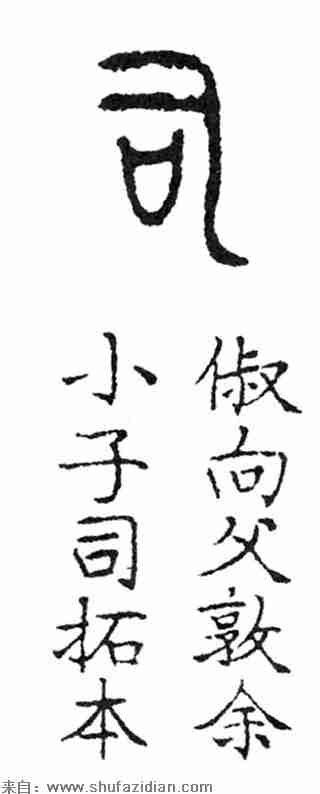 司
俶向父敦余
小子司拓本
来自：www.shufazidian.com